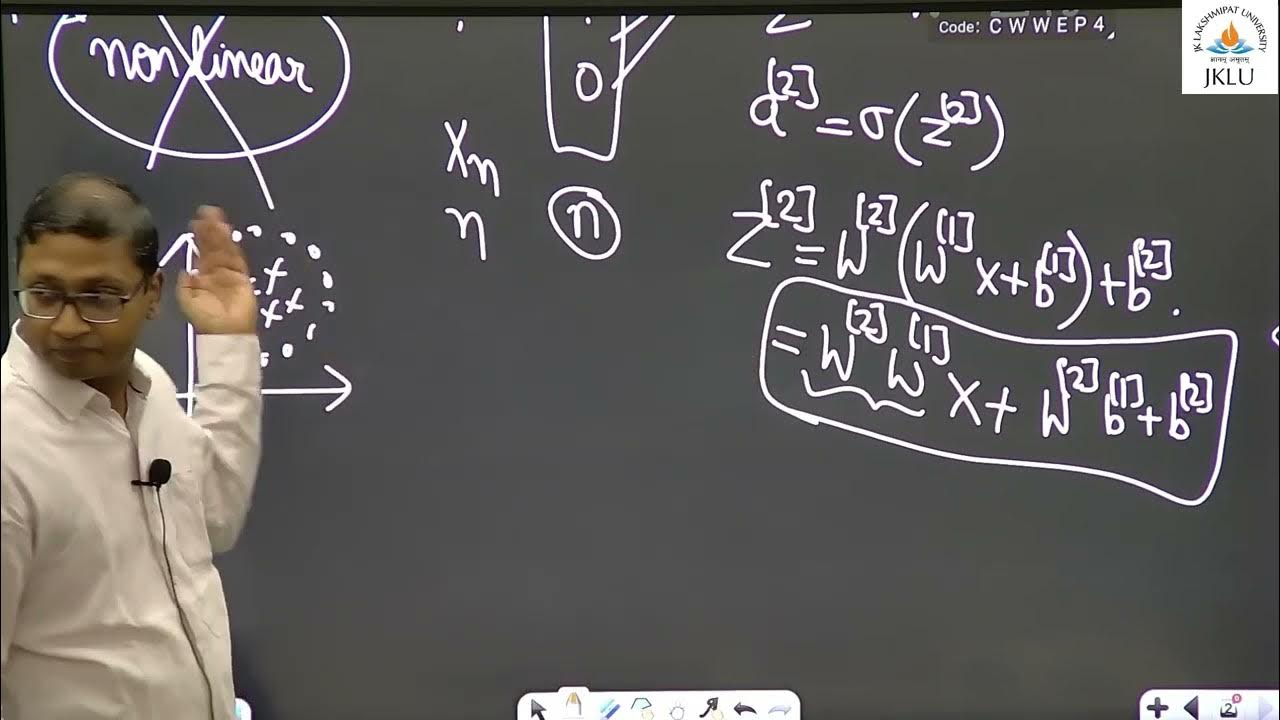 Code: C W W E P 4
JK LAKSHMIPAT UNIVERSITY
JKLU
non linear
0
a^[2] = σ(z^[2])
x_n
n
n
Z^[2] = W^[2](W^[1] x + b^[1]) + b^[2].
= W^[2] W^[1] x + W^[2] b^[1] + b^[2]
2